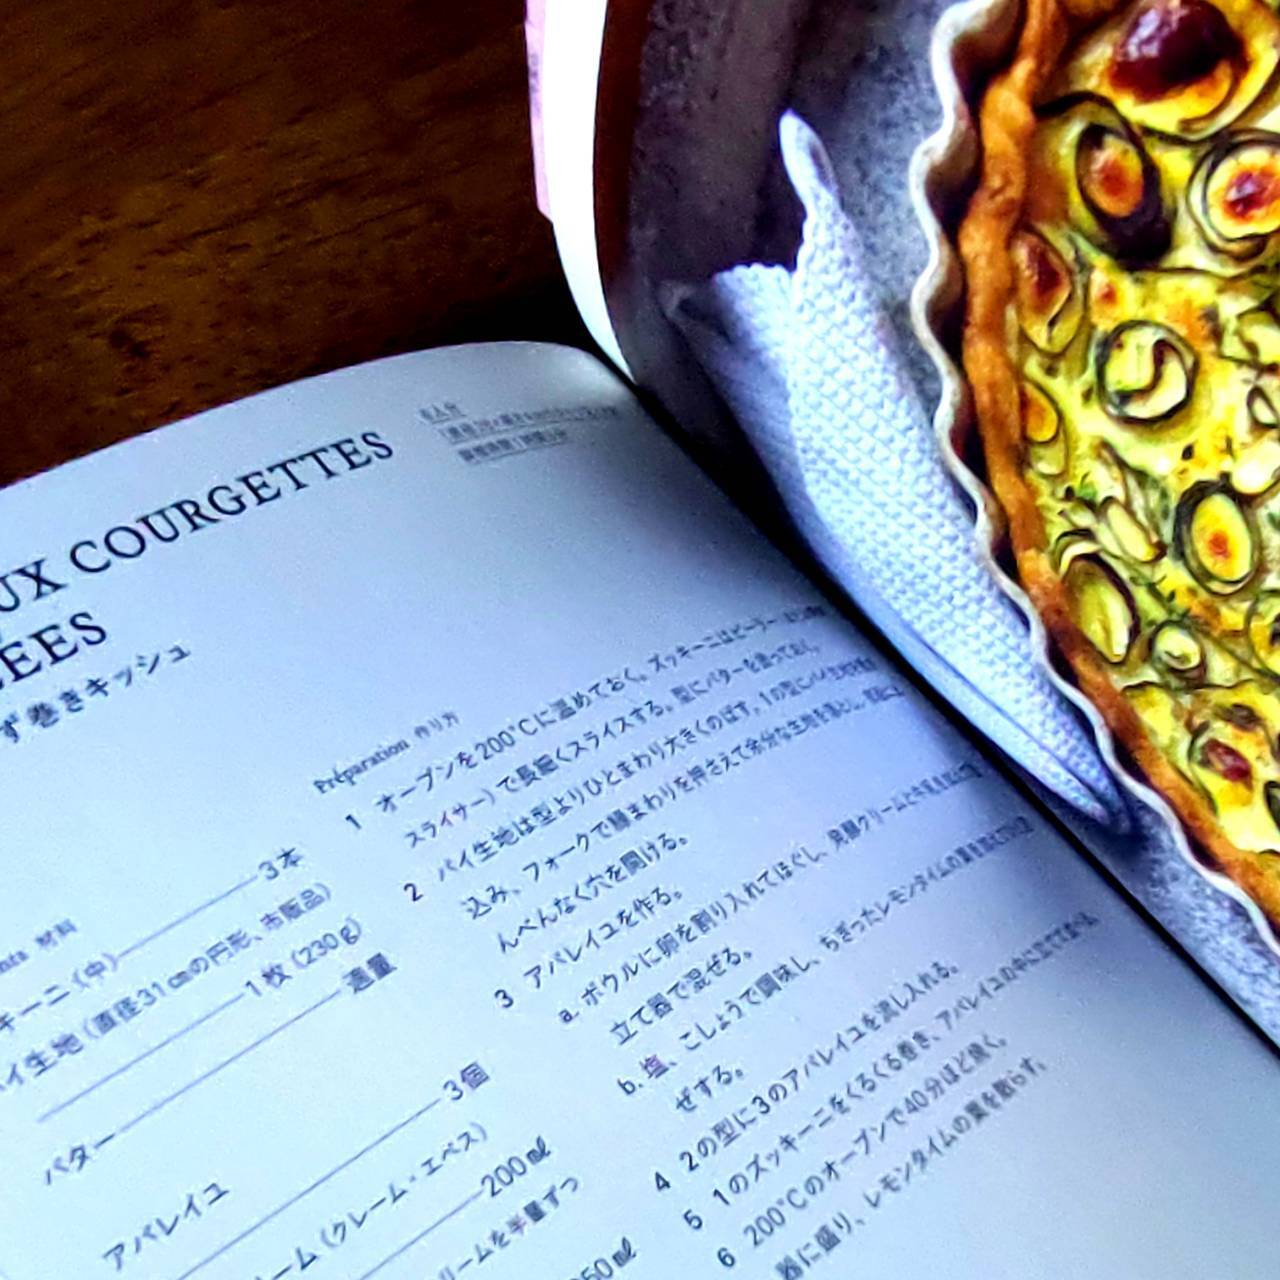 UX COURGETTES
ÉES
ず巻きキッシュ
6人分
材料
キーニ（中） 3本
イ生地（直径31cmの円形、市販品）
1枚（230g）
バター 適量
アパレイユ
3個
ーム（クレーム・エペス）
200ml
リームを半量ずつ
50ml
Préparation 作り方
1 オーブンを200℃に温めておく。ズッキーニはピーラー
スライサー）で長細くスライスする。型にバターを塗っておく。
2 パイ生地は型よりひとまわり大きくのばす。1の型にパイ生地を
込み、フォークで縁まわりを押さえて余分な生地を落とし、
んべんなく穴を開ける。
3 アパレイユを作る。
a. ボウルに卵を割り入れてほぐし、発酵クリームと
立て器で混ぜる。
b. 塩、こしょうで調味し、ちぎったレモンタイムの葉を
ぜする。
4 2の型に3のアパレイユを流し入れる。
5 1のズッキーニをくるくる巻き、アパレイユの中に立てて並べる。
6 200℃のオーブンで40分ほど焼く。
器に盛り、レモンタイムの葉を散らす。